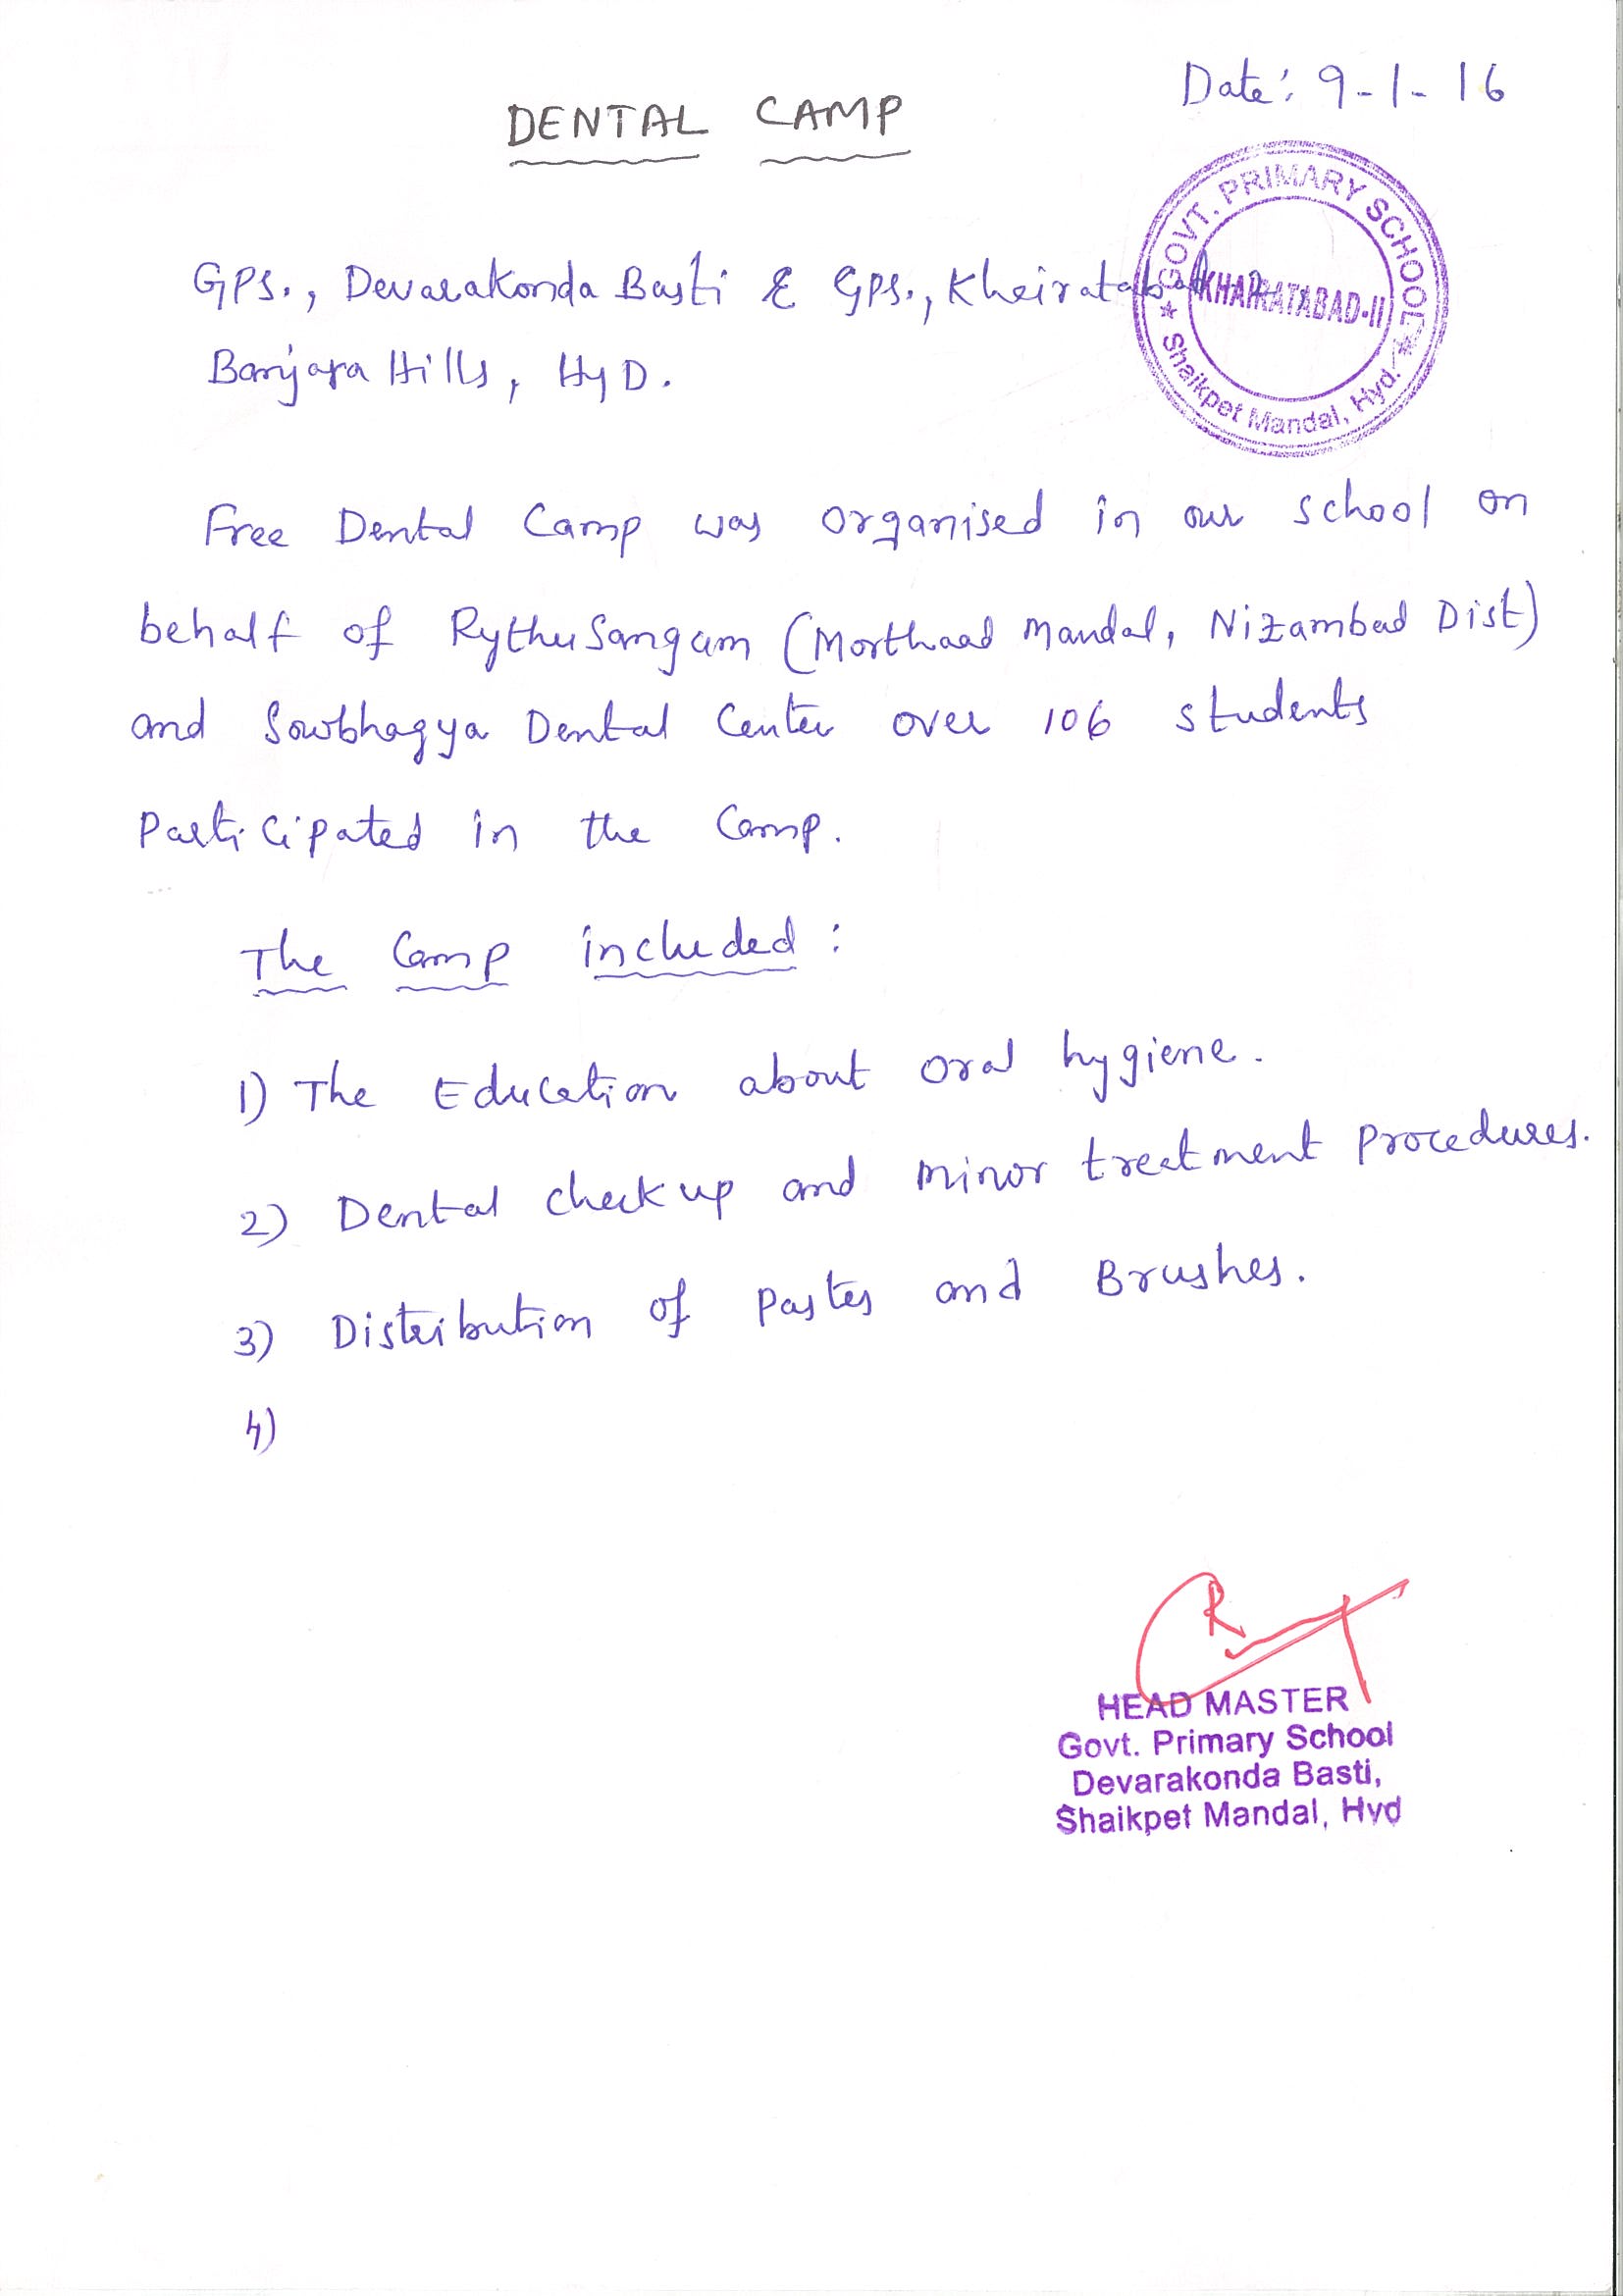 Date: 9-1-16
DENTAL CAMP
GOVT. PRIMARY SCHOOL
KHAIRATABAD-II
Shaikpet Mandal, Hyd.
GPS., Devarakonda Basti & GPS., Khairatabad
Banjara Hills, HyD.
Free Dental Camp was organised in our school on
behalf of Rythu Sangam (Morthaad Mandal, Nizambad Dist)
and Sowbhagya Dental Center over 106 students
Participated in the Camp.
The Camp included :
1) The Education about oral hygiene.
2) Dental check up and minor treatment procedures.
3) Distribution of Pastes and Brushes.
4)
HEAD MASTER
Govt. Primary School
Devarakonda Basti,
Shaikpet Mandal, Hyd